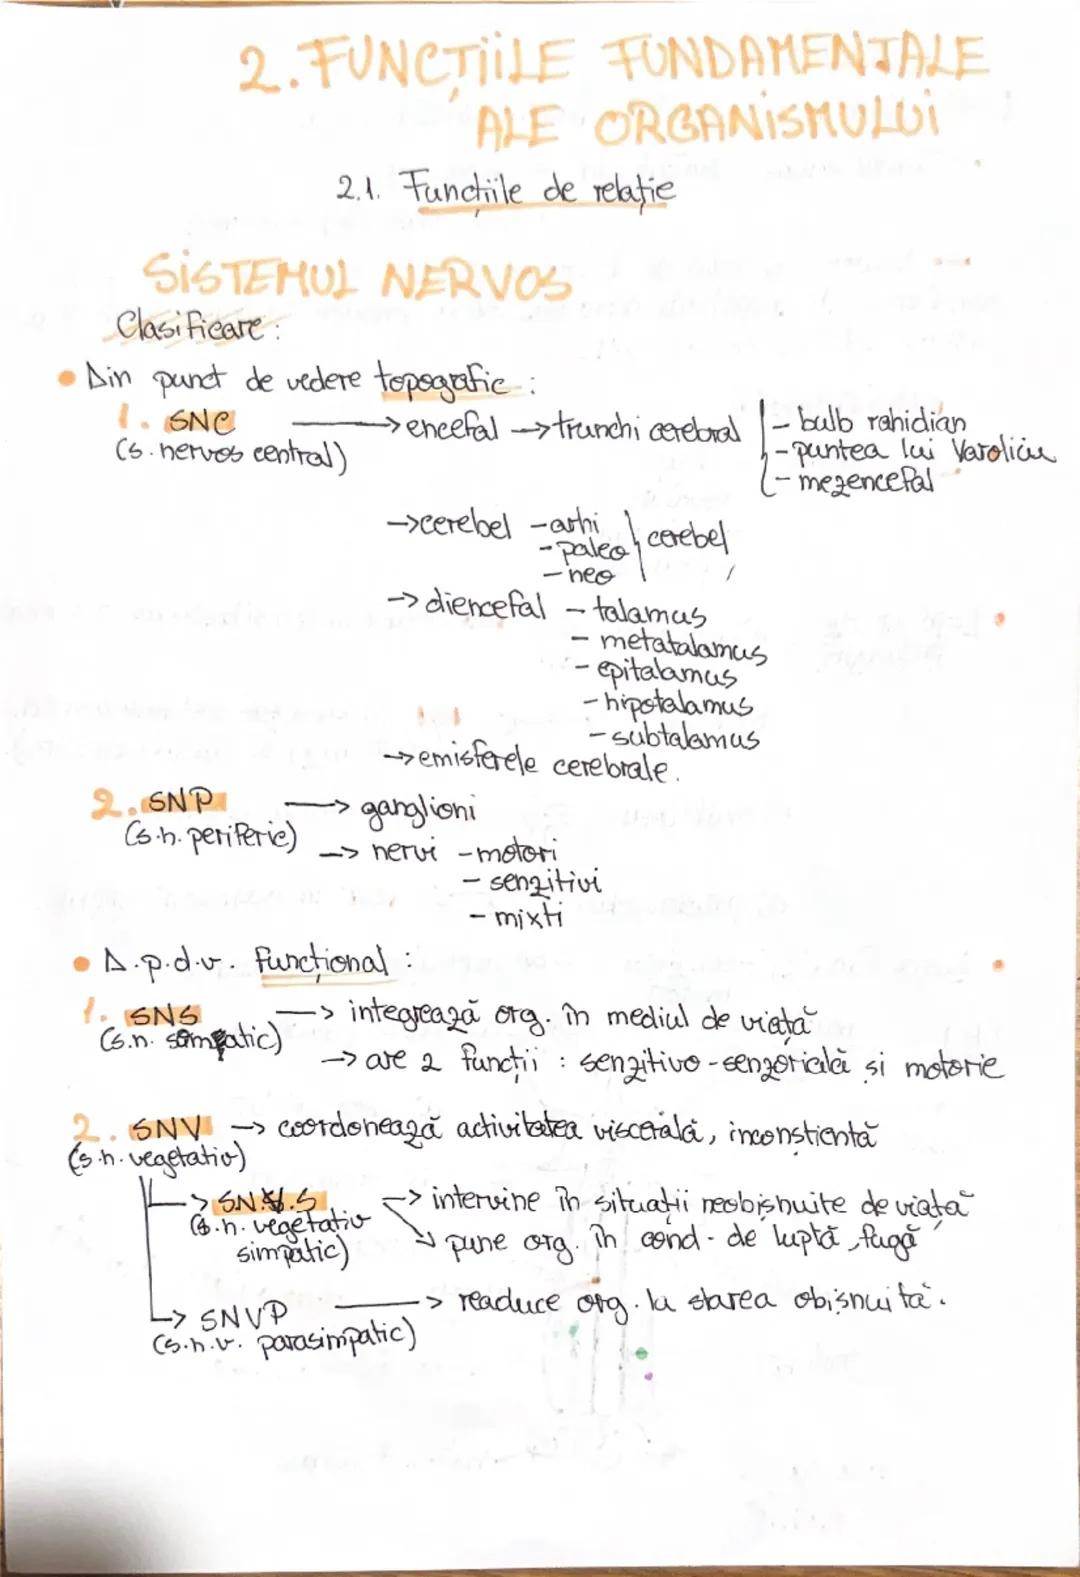 2. FUNCȚIILE FUNDAMENTALE
ALE ORGANISMULUI
2.1. Funcțiile de relație
SISTEMUL NERVOS
Clasificare:
• Din punct de vedere topografic:
1. SNC → encefal → trunchi cerebral - bulb rahidian
(s. nervos central) - puntea lui Varoliu
- mezencefal
→ cerebel - arhi
- paleo } cerebel
- neo
→ diencefal - talamus
- metatalamus
- epitalamus
- hipotalamus
- subtalamus
→ emisferele cerebrale.
2. SNP → ganglioni
(s.n. periferic) → nervi - motori
- senzitivi
- mixti
• D.p.d.v. funcțional:
1. SNS → integrează org. în mediul de viață
(s.n. somatic) → are 2 funcții : senzitivo-senzorială si motorie
2. SNV → coordonează activitatea viscerală, inconstientă
(s.n. vegetativ)
→ SNV.S → intervine în situații neobișnuite de viață
(s.n. vegetativ → pune org. în cond. de luptă, fugă
simpatic)
→ SNVP → readuce org. la starea obișnuită.
(s.n.v. parasimpatic)